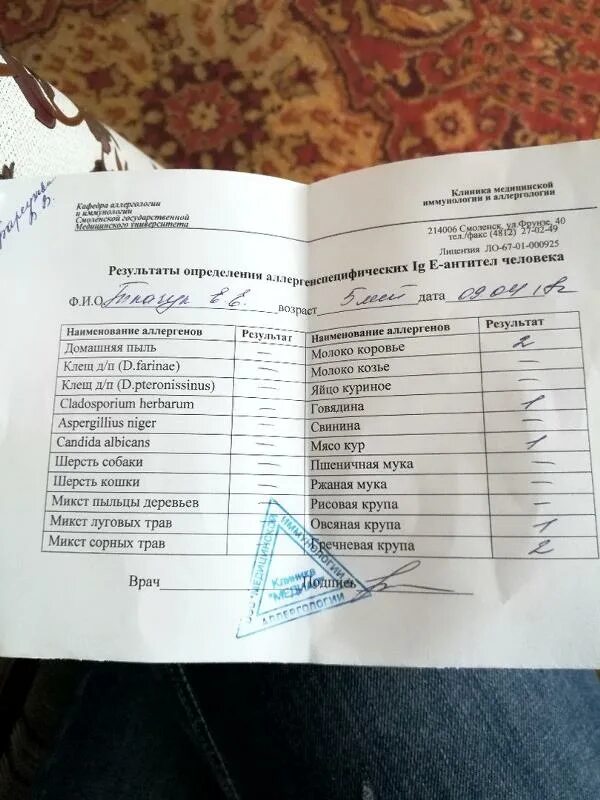 Кафедра аллергологии
и иммунологии
Смоленской государственной
Медицинского университета
Клиника медицинской
иммунологии и аллергологии
214006 Смоленск, ул.Фрунзе, 40
тел./факс (4812) 27-02-49
Лицензия ЛО-67-01-000925
Результаты определения аллергенспецифических Ig E-антител человека
Ф.И.О Ткачук Е.Е. возраст 5 лет дата 09.04.18г
Наименование аллергенов Результат
Домашняя пыль –
Клещ д/п (D.farinae) –
Клещ д/п (D.pteronissinus) –
Cladosporium herbarum –
Aspergillius niger –
Candida albicans –
Шерсть собаки –
Шерсть кошки –
Микст пыльцы деревьев –
Микст луговых трав
Микст сорных трав
Наименование аллергенов Результат
Молоко коровье 2
Молоко козье –
Яйцо куриное –
Говядина 1
Свинина –
Мясо кур 1
Пшеничная мука –
Ржаная мука –
Рисовая крупа –
Овсяная крупа 1
Гречневая крупа 2
Врач Подпись
ООО "МЕДИЦИНСКОЙ
ИММУНОЛОГИИ
АЛЛЕРГОЛОГИИ
Клиника